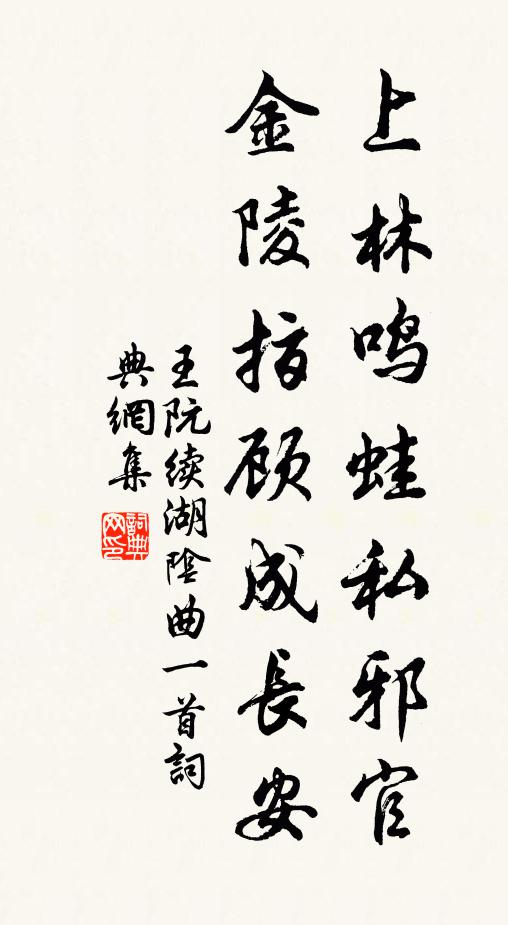 上林鸣蛙私邪官
金陵指顾成長安
王阮续湖陰曲一首詞
典網集
詞典
网印